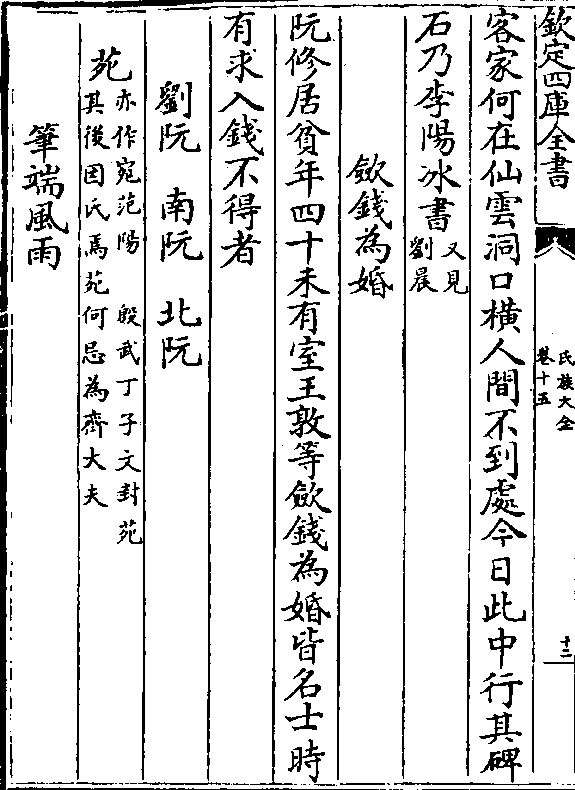 欽定四庫全書
氏族大全
卷十五
十二
客家何在仙雲洞口横人間不到處今日此中行其碑
石乃李陽冰書又見
劉晨
歛錢為婚
阮修居貧年四十未有室王敦等歛錢為婚皆名士時
有求入錢不得者
劉阮　南阮　北阮
苑亦作宛范陽　殷武丁子文封苑
其後因氏焉苑何忌為齊大夫
筆端風雨